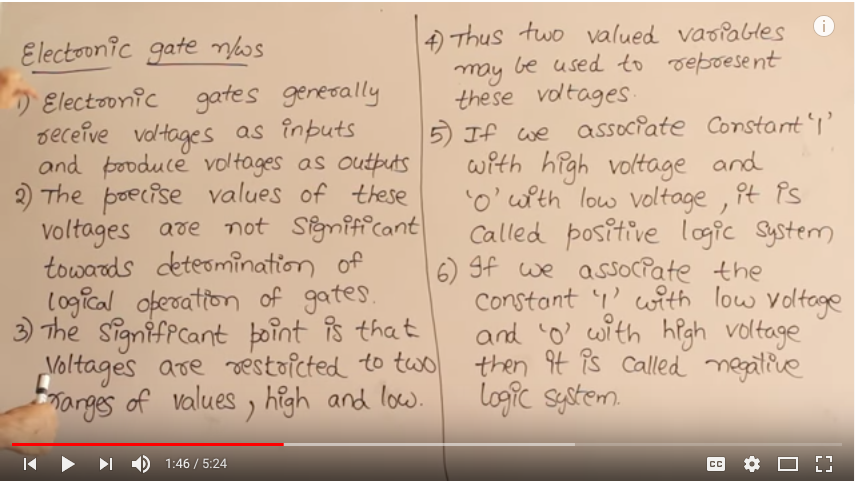 Electronic gate n/ws
1) Electronic gates generally
receive voltages as inputs
and produce voltages as outputs
2) The precise values of these
voltages are not significant
towards determination of
logical operation of gates.
3) The significant point is that
voltages are restricted to two
ranges of values, high and low.
4) Thus two valued variables
may be used to represent
these voltages.
5) If we associate Constant '1'
with high voltage and
'0' with low voltage, it is
called positive logic system
6) If we associate the
constant '1' with low voltage
and '0' with high voltage
then it is called negative
logic system.
1:46 / 5:24
CC